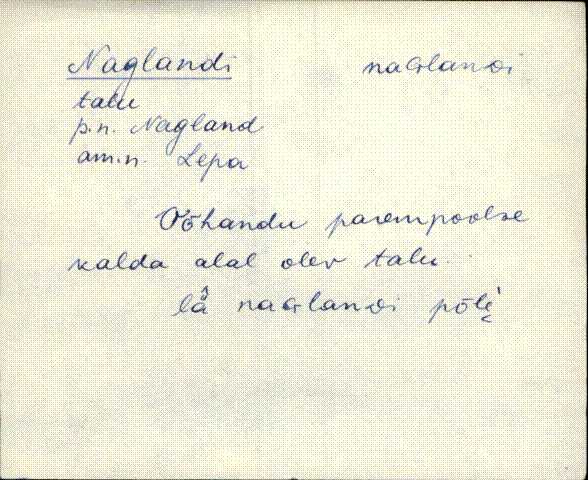 Naglandi naGlanDi
talu
p.n. Nagland
am.n. Lepa
Võhandu parempoolse
kalda alal olev talu.
lǟ̂ naGlanDi põlè